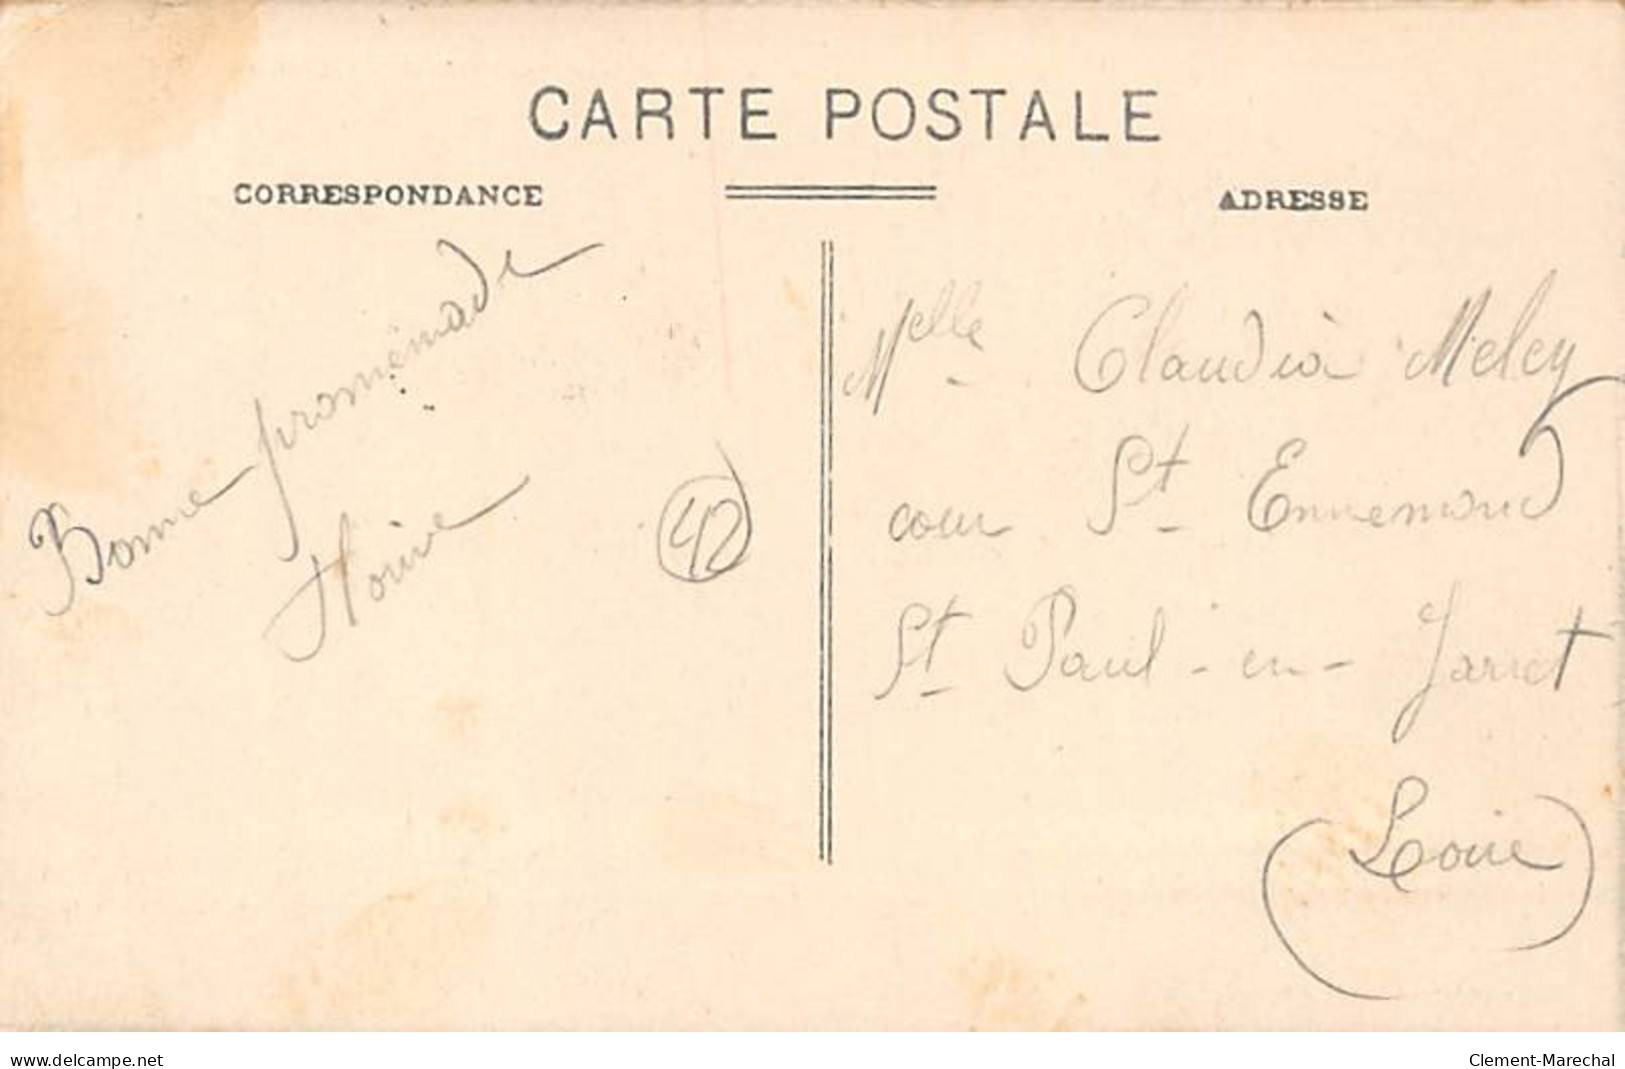 CARTE POSTALE
CORRESPONDANCE
ADRESSE
Bonne promenade
42
Melle Claudia Meley
cour St Ennemond
St Paul-en-Jarret
(Loire)
www.delcampe.net
Clement-Marechal